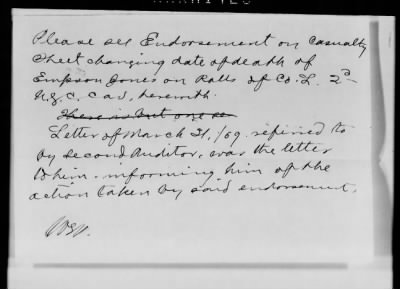 Please see Endorsement on Casualty
Sheet changing date of death of
Empson Jones on Rolls of Co. L. 2d
N.G.C. Cav, herewith.
There is but one se
Letter of March 31, /09. referred to
by second Auditor, was the letter
to him informing him of the
action taken by said endorsement.